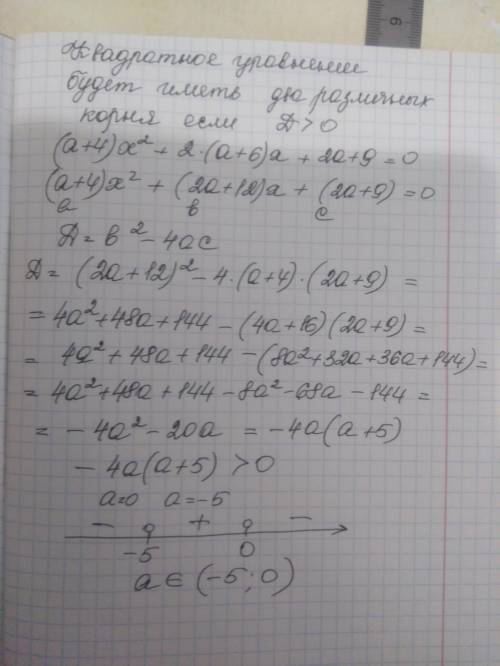 9
Квадратное уравнении
будет иметь два различных
корня если D>0
(a+4)x² + 2·(a+6)a + 2a+9=0
(a+4)x² + (2a+12)a + (2a+9)=0
a в c
D = в² - 4ac
D = (2a+12)² - 4·(a+4)·(2a+9) =
= 4a²+48a+144 - (4a+16)(2a+9) =
= 4a²+48a+144 - (8a²+32a+36a+144) =
= 4a²+48a+144-8a²-68a-144 =
= -4a²-20a = -4a(a+5)
-4a(a+5) >0
a=0 a=-5
- + -
-5 0
a ∈ (-5; 0)